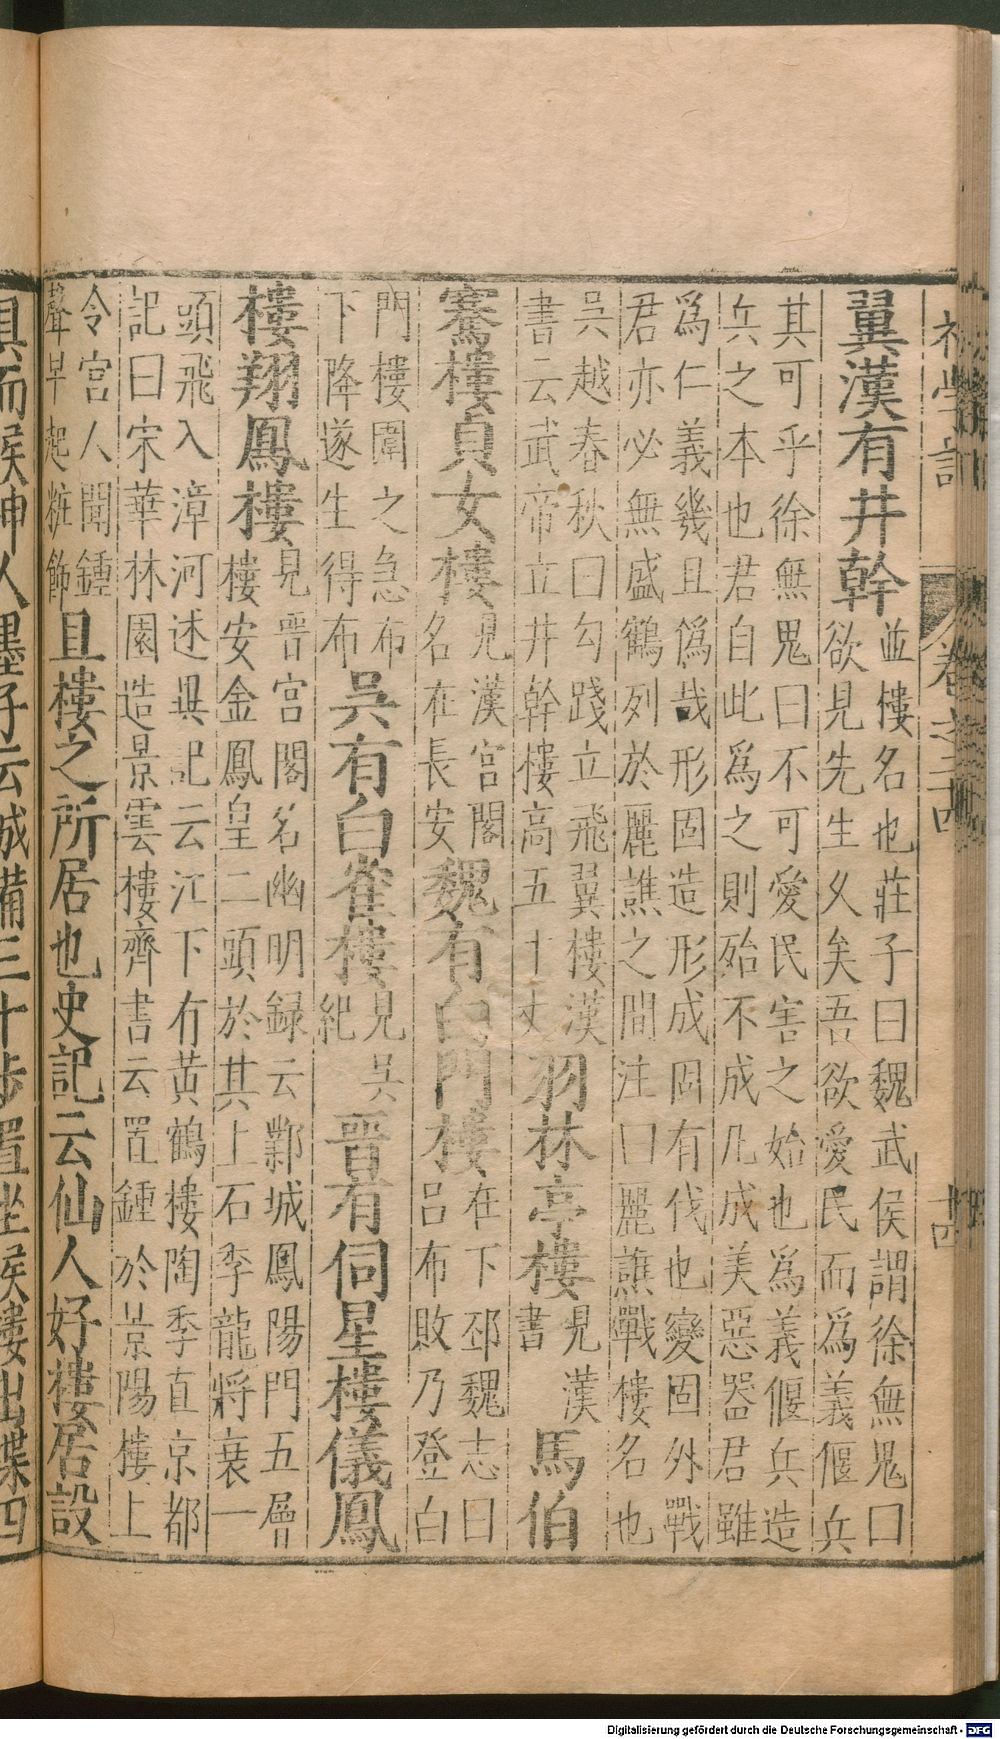 初學記 卷之二十四 十四
翼漢有井幹
並樓名也莊子曰魏武侯謂徐無鬼曰
欲見先生久矣吾欲愛民而為義偃兵
其可乎徐無鬼曰不可愛民害之始也為義偃兵造
兵之本也君自此為之則殆不成凡成美惡器君雖
為仁義幾且偽哉形固造形成固有伐也變固外戰
君亦必無盛鶴列於麗譙之間注曰麗譙戰樓名也
吳越春秋曰勾踐立飛翼樓漢
書云武帝立井幹樓高五十丈
羽林亭樓
見漢
書
馬伯
騫樓貞女樓
見漢宮閣
名在長安
魏有白門樓
在下邳魏志曰
呂布敗乃登白
門樓圍之急布
下降遂生得布
吳有白雀樓
見吳
紀
晉有伺星樓儀鳳
樓翔鳳樓
見晉宮閣名幽明録云鄴城鳳陽門五層
樓安金鳳皇二頭於其上石季龍將衰一
頭飛入漳河述異記云江下有黃鶴樓陶季直京都
記曰宋華林園造景雲樓齊書云置鍾於景陽樓上
令宮人聞鍾
聲早起粧飾
且樓之所居也史記云仙人好樓居設
具而候神人墨子云城備三十步置坐候樓出堞四
Digitalisierung gefördert durch die Deutsche Forschungsgemeinschaft - DFG